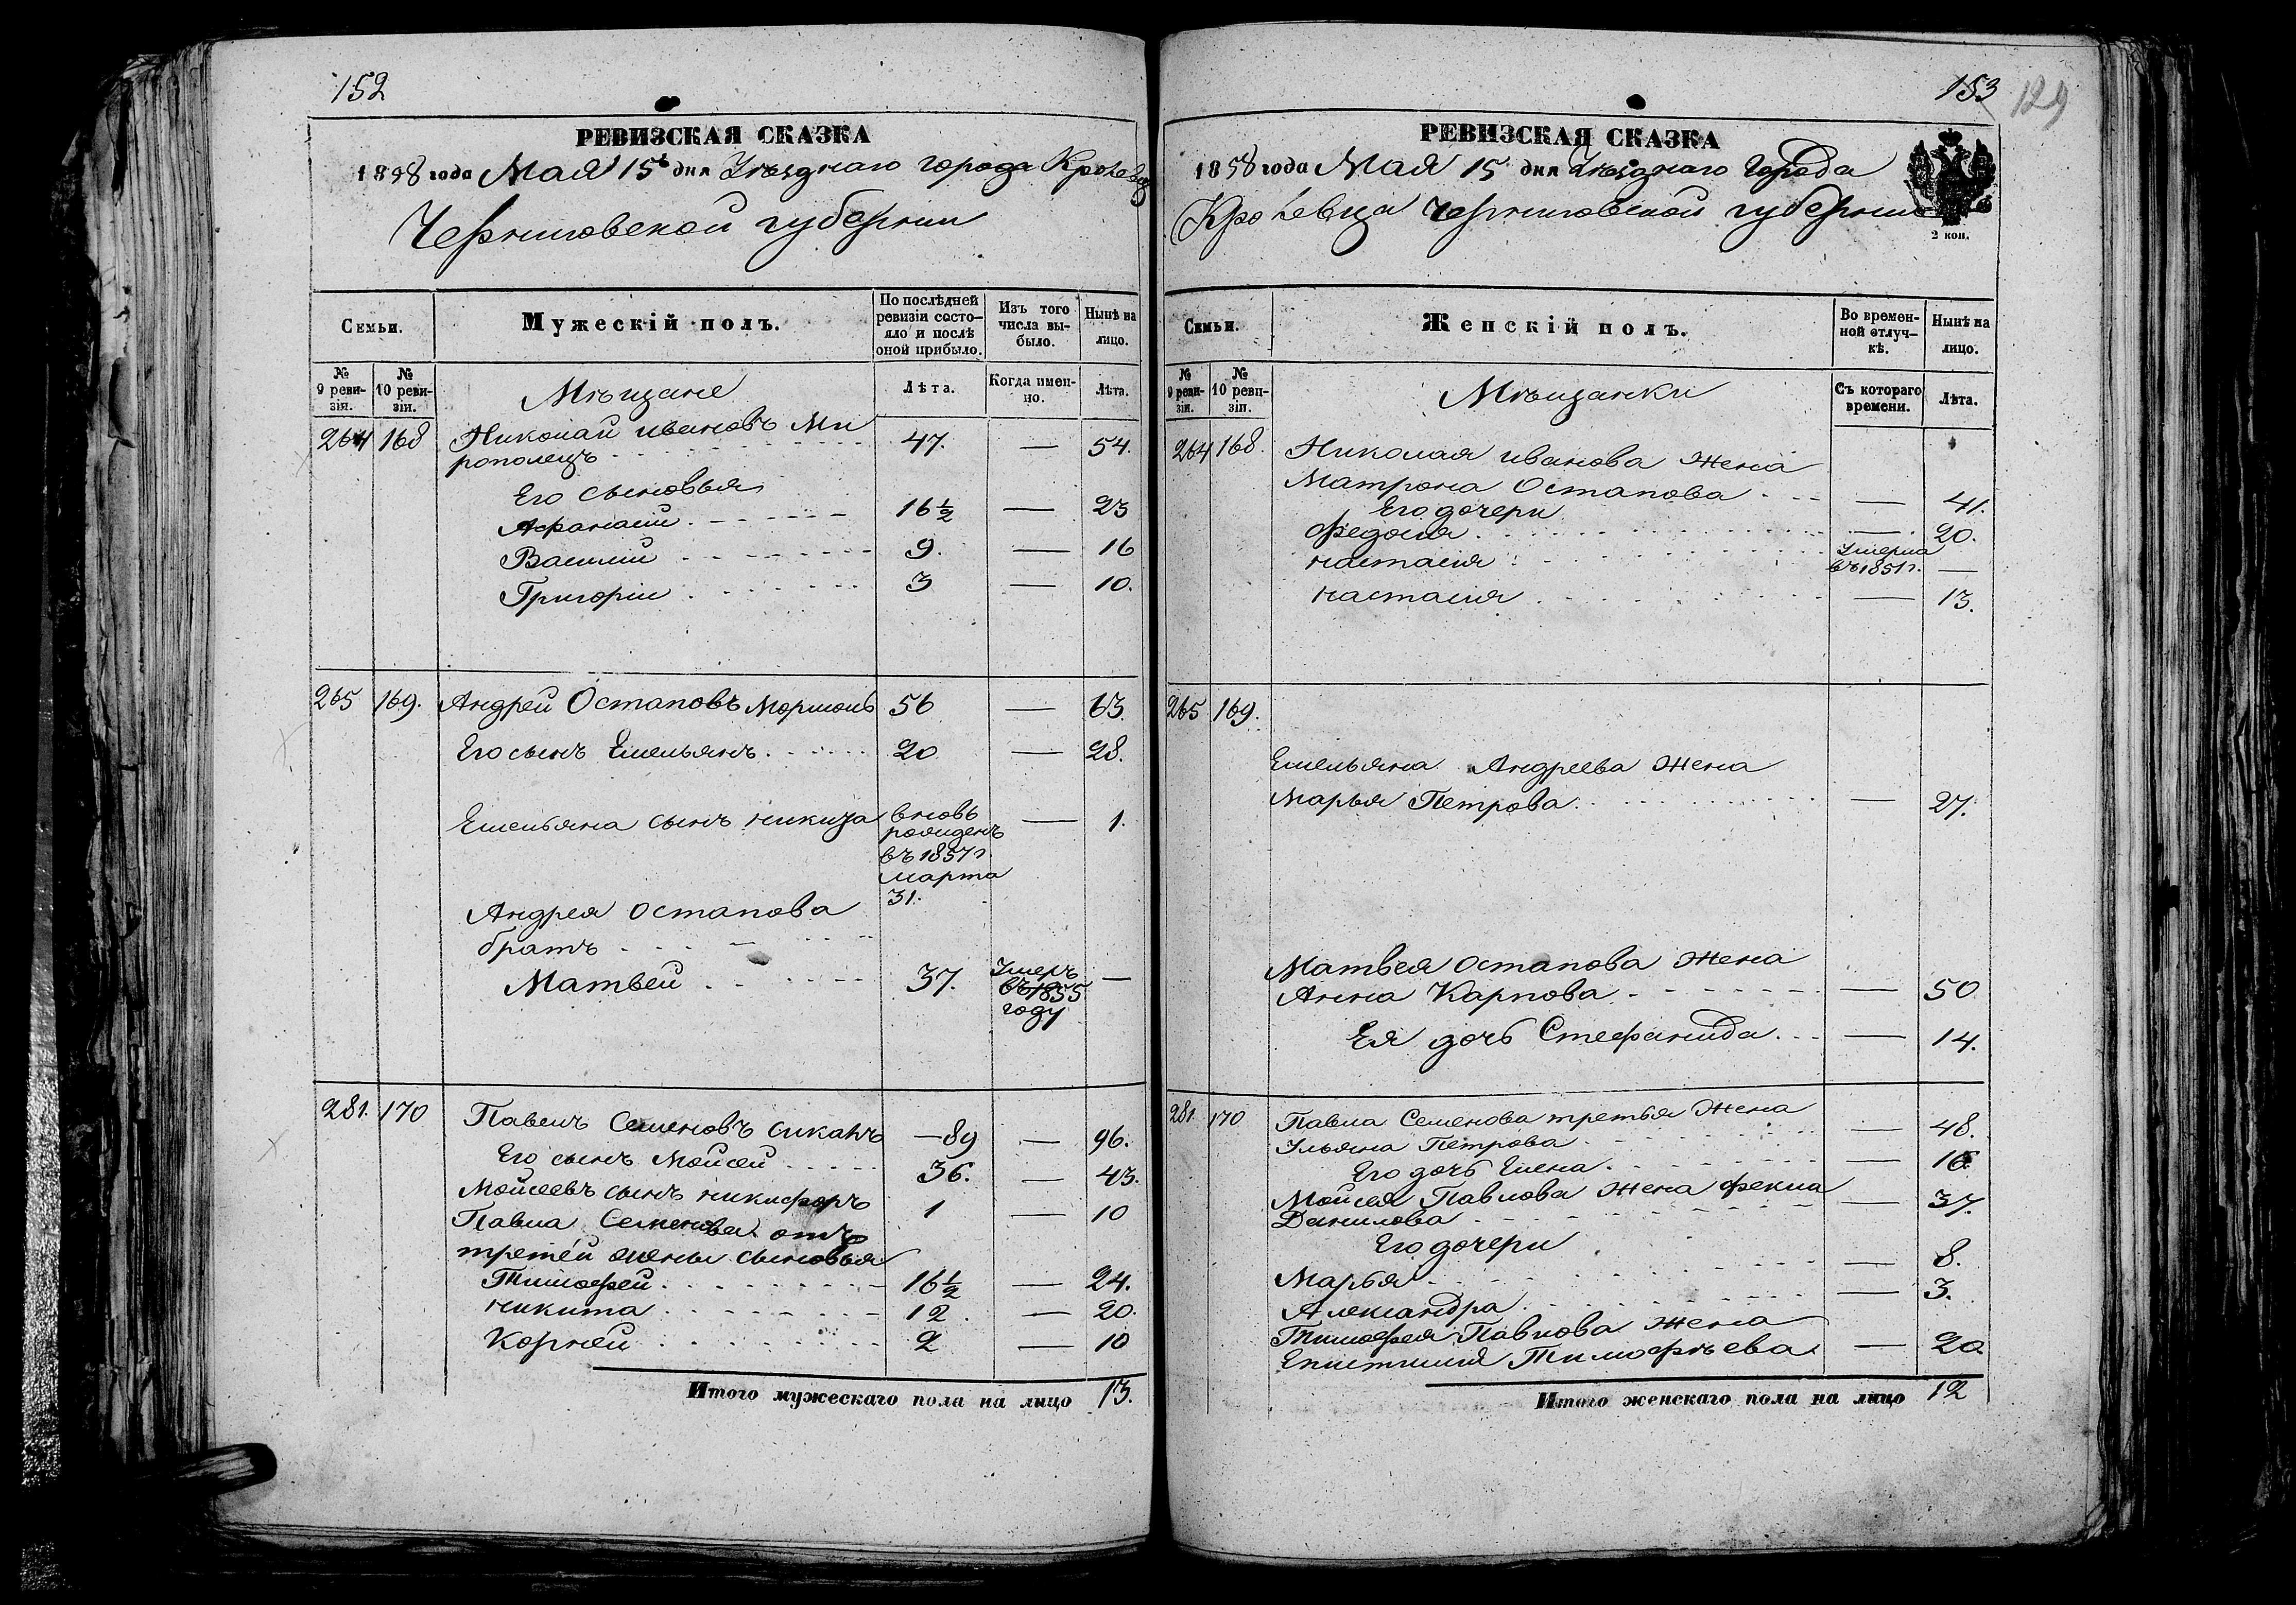 152
РЕВИЗСКАЯ СКАЗКА
1858 года Мая 15 дня Уѣзднаго города Кролевца
Черниговской губернии
Семьи.
Мужескій полъ.
По послѣдней ревизіи состо-
яло и послѣ
оной прибыло.
Изъ того
числа вы-
было.
Нынѣ на
лицо.
№
9 реви-
зія.
№
10 реви-
зіи.
Мѣщане
Лѣта.
Когда имен-
но.
Лѣта.
264 168 Николай Ивановъ Ми
рополецъ 47. — 54.
Его сыновья
Афанасий 16½ — 23
Василий 9. — 16
Григорий 3 — 10.
265 169. Андрей Остаповъ 56 — 63.
Его сынъ Емельянъ 20 — 28.
Емельяна сынъ Никита вновь — 1.
рожденъ
въ 1857 г.
марта
31.
Андрея Остапова
братъ
Матвей 37. Умеръ —
въ 1855
году
281. 170 Павелъ Семеновъ Сиканъ —89 — 96.
Его сынъ Мойсей 36. — 43.
Мойсеевъ сынъ Никифоръ 1 — 10
Павла Семенова отъ
третей жены сыновья
Тимофей 16½ — 24.
Никита 12. — 20.
Корней 2 — 10
Итого мужескаго пола на лицо 13.
153
129
РЕВИЗСКАЯ СКАЗКА
1858 года Мая 15 дня Уѣзднаго Города
Кролевца Черниговской губернии
2 коп.
Семьи.
Женскій полъ.
Во времен-
ной отлуч-
кѣ.
Нынѣ на
лицо.
№
9 реви-
зіи.
№
10 реви-
зіи.
Мѣщанки
Съ котораго
времени.
Лѣта.
264 168. Николая Иванова жена
Матрона Остапова — 41.
Его дочери
Федосия — 20.
Настасия Умерла
въ 1851 г. —
Настасия — 13.
265 169.
Емельяна Андреева жена
Марья Петрова — 27.
Матвея Остапова жена
Анна Карпова — 50
Ея дочь Стефанида — 14.
281. 170 Павла Семенова третья жена
Ульяна Петрова — 48.
Его дочь Елена — 16
Мойсея Павлова жена Фекла
Данилова — 37.
Его дочери
Марья — 8.
Александра — 3.
Тимофея Павлова жена
Епистимия Тимофѣева — 20
Итого женскаго пола на лицо 12